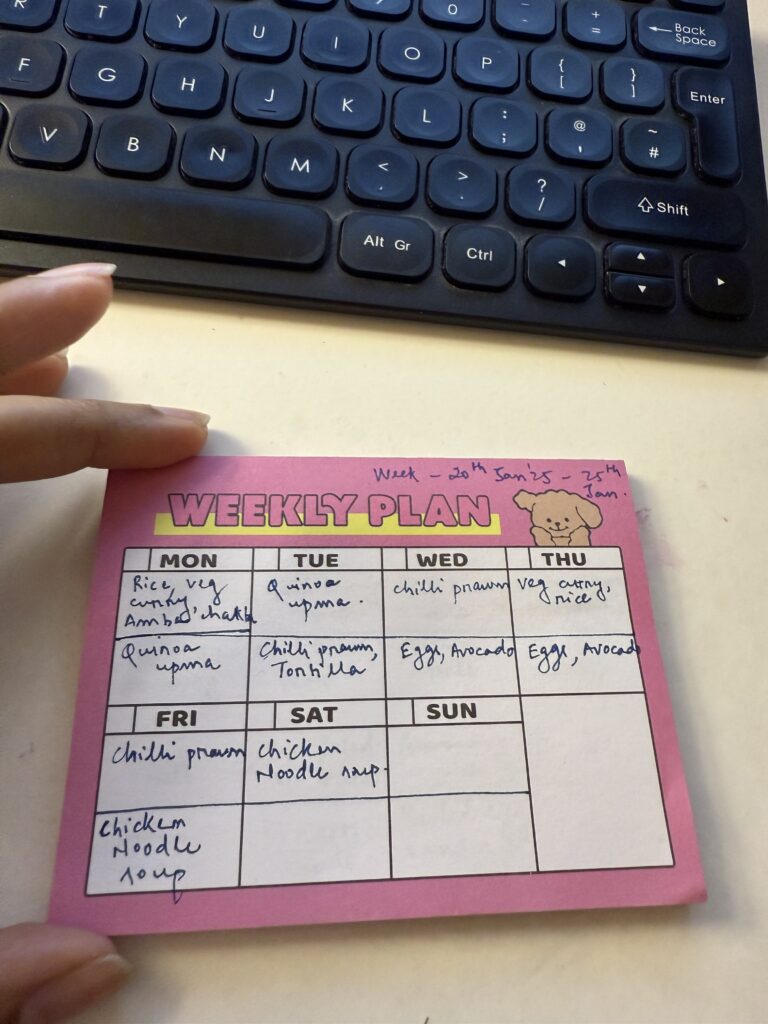 R T Y U I O P { [ } ] 0 - + = ← Back Space
F G H J K L : ; @ ' ~ # Enter
V B N M < , > . ? / ⇧ Shift
Alt Gr Ctrl ◄ ▲ ▼ ►
Week - 20th Jan'25 - 25th
Jan.
WEEKLY PLAN
MON TUE WED THU
Rice, veg
curry
Quinoa
upma.
chilli prawn
veg curry,
rice
Quinoa
upma
Chilli prawn,
Tortilla
Eggs, Avocado
Eggs, Avocado
FRI SAT SUN
Chilli prawn
Chicken
Noodle soup.
Chicken
Noodle
soup